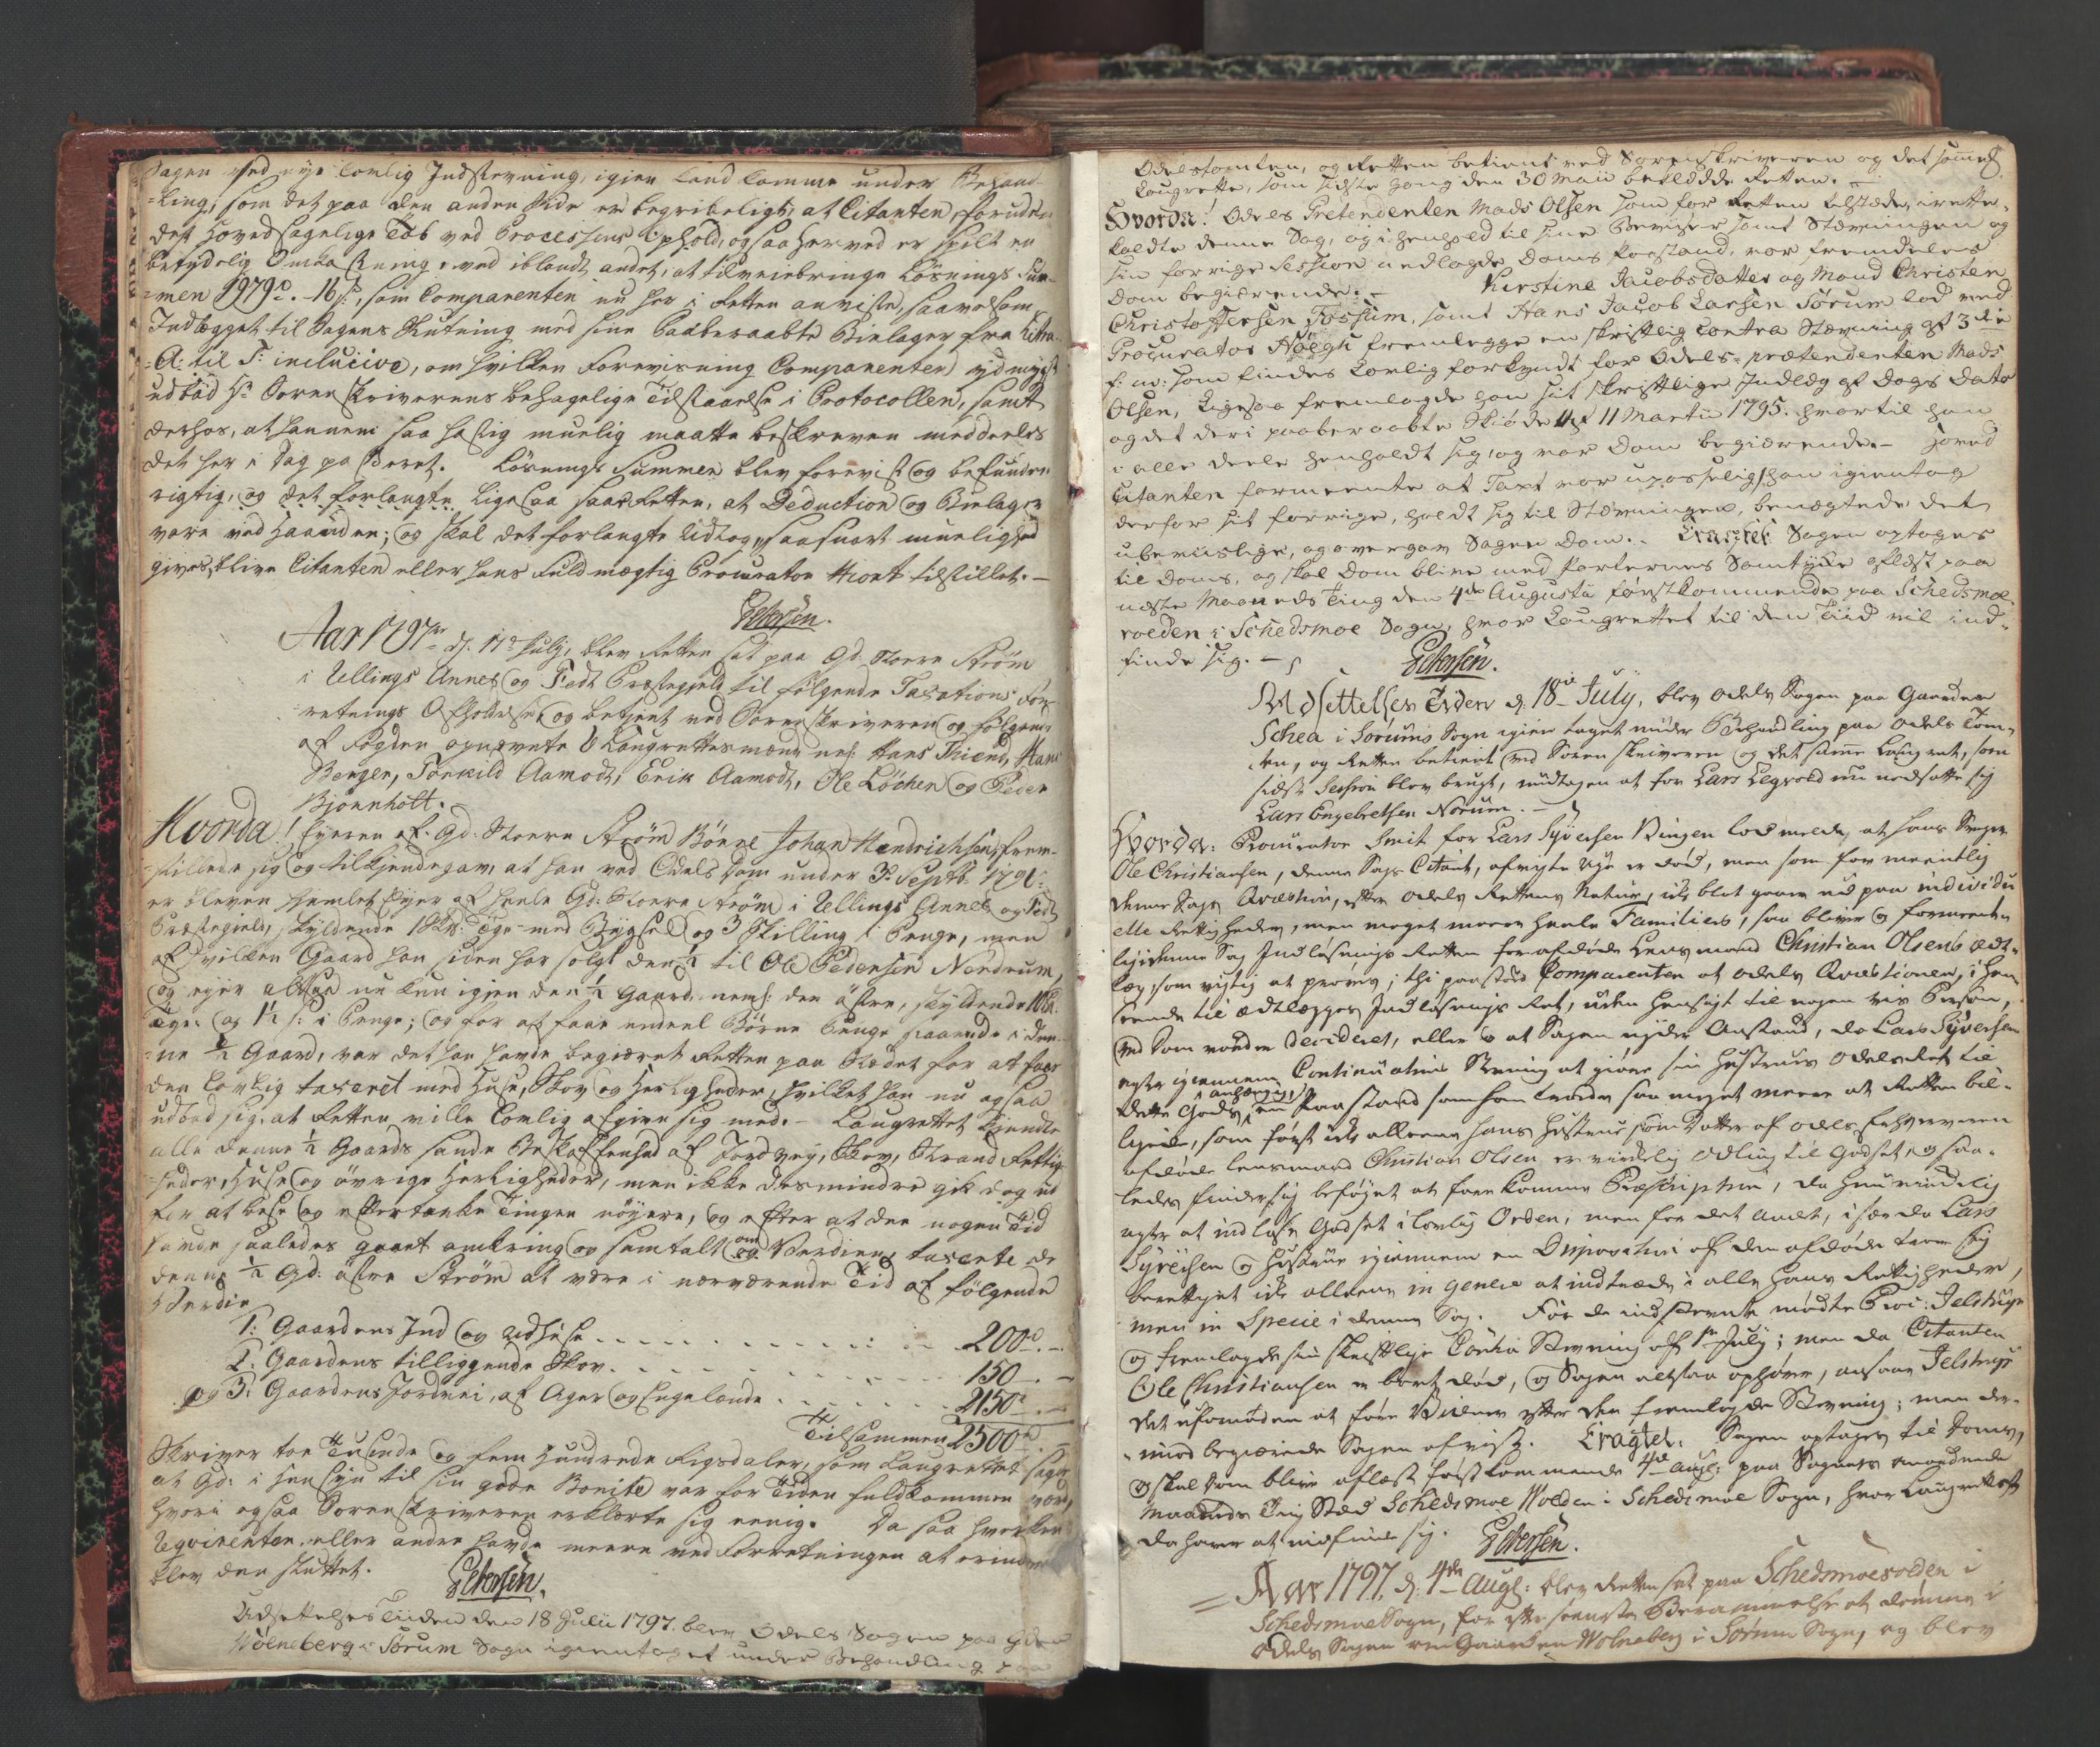 Sagen ved nye lovlig Indstevning, igien kand komme under Behand-
-ling; som det paa den anden Side er begribeligt, at Citanten, foruden
det hovedsagelige Tab ved Processens Ophold, ogsaa herved er spilt en
betydelig Omkastning, ved iblandt andet, at tilveiebringe Løsnings Sum-
-men 1979 rd. 16 s., som Comparenten nu her i Retten anviste, saavelsom
Indlegget til Sagens Slutning med sine paaberaabte Bielager fra Litra
A. til T. inclucive, om hvilken Forevisning Comparenten ydmygst
udbad Hr Sorenskriverens behagelige Tilstaaelse i Protocollen, samt
derhos, at hannem saa hastig muelig maatte beskreven meddeeles
det her i Dag passeret. Løsnings Summen blev forevist og befunden
rigtig, og det forlangte ligesaa saae Retten, at Deduction og Bielager
vare ved Haanden; og skal det forlangte Udtog, saasnart muelighed
gives, blive Citanten eller hans Fuldmægtig Procurator tilstillet. —
Petersen.
Aar 1797 d. 17 July, blev Retten sat paa Gd. Store Strøm
i Ullings Annex og Fedt Præstegield til følgende Taxations For-
retnings Afholdelse, og betjent ved Sorenskriveren og følgende
af Fogden opnevnte 6 Laugrettesmænd nl. Hans Thiend, Hans
Berger, Torkild Aamodt, Erik Aamodt, Ole Løchen og Peder
Bjønnholt.
Hvorda! Eyeren af Gd. Store Strøm Børre Johan Hendrichsen frem-
-stillede sig og tilkiendegav, at han ved Odels Dom under 3 Septb. 179
er bleven hiemlet Eyer af heele Gd. Store Strøm i Ullings Annex og Fedt
Præstegield, skyldende 1 Skp. Tyge med Bygsel og 3 Skilling i Penge, men
af hvilken Gaard han siden har solgt den ½ til Ole Pedersen Nordrum,
og ejer altsaa nu kun igjen den ½ Gaard neml. den østre, skyldende 10 Lp.
Tyge og 1½ s. i Penge; og for at faae endeel Børne Penge staaende i den-
-ne ½ Gaard, var det han havde begiæret Retten paa Stedet for at faae
den lovlig taxeret med Huse, Skov og Herligheder, hvilket han nu ogsaa
udbad sig, at Retten ville lovlig afgive sig med. — Laugrettet kiendte
alle denne ½ Gaards sande Beskaffenhed af Jordvey, Skov, Strand Rettig-
-heder, Huse og øvrige Herligheder, men ikke desmindre gik dog ud
for at bese og eftertænke Tingen nøyere, og efter at den nogen Tid
havde saaledes gaaet omkring og samtalt om Verdien taxerte de
denne ½ Gd. østre Strøm at være i nærværende Tid af følgende
Verdie
1: Gaardens Ind og Udhuse . . . . . . . . 200 rd. —
2: Gaardens tilliggende Skov . . . . . . . . 150 . —
og 3: Gaardens Jordvei, af Ager og Engelande . . . . . . 2150 . —
Tilsammen 2500 rd. —
Skriver toe Tusinde og fem Hundrede Rigsdaler, som Laugrettet siger
at Gd. i hensyn til sin gode Bonite var for Tiden fuldkommen værd,
hvori ogsaa Sorenskriveren erklærte sig eenig. Da saa hverken
Reqvirenten eller andre havde meere ved Forretningen at erindre
blev den sluttet.
Petersen.
Udsettelses Tiiden den 18 Julii 1797 blev Odels Sagen paa Gden
Wolneberg i Sørum Sogn igientaget under Behandling paa
Odelstomten, og Retten betient ved Sorenskriveren og det samme
Laugrette, som sidste gang den 30 Maii beklædde Retten. —
Hvorda! Odels Pretendenten Mads Olsen som for Retten tilstæde, irette-
kaldte denne Sag, og i henhold til sine Beviser samt Stævningen og
sin forrige Session nedlagde Doms Paastand, var fremdeles
Dom begiærende. — Kirstine Jacobsdatter og Mand Christen
Christoffersen Fossum, samt Hans Jacob Larsen Sørum lod ved
Procurator Høegh fremlegge en skriftlig Contra Stævning af 3die
f. m. som findes lovlig forkyndt for Odels-prætendenten Mads
Olsen, ligesaa fremlagde han sit skriftlige Indlæg af Dags Dato
og det deri paaberaabte Skiøde af 11 Martii 1795. hvortil han
i alle deele henholdt sig, og var Dom begiærende. — Hoved
Citanten formeente at Taxt var upasselig, han igientog
derfor sit forrige, holdt sig til Stævningen, benægtede det
ubeviislige, og overgav Sagen Dom. . Eragtet Sagen optages
til Doms, og skal Dom blive med Parternes Samtykke aflæst paa
næste Maaneds Ting den 4de Augustii førstkommende paa Schedsmoe
volden i Schedsmoe Sogn, hvor Laugrettet til den Tiid vil ind-
finde sig. —
Petersen.
Udsettelses Tiden d. 18 July, blev Odels Sagen paa Gaarden
Schea i Sørums Sogn igien taget under Behandling paa Odels Tom-
ten, og Retten betient ved Sorenskriveren og det samme Laugret, som
sidste Session blev brugt, undtagen at for Lars Legvold nu nedsatte sig
Lars Engebretsen Norum. —
Hvorda: Procurator Smit for Lars Syversen Bingen lod melde, at hans Sviger
Ole Christiansen, denne Sags Citant, afvigte Uge er død, men som formeentlig
denne Sags Qvæstion, efter Odels Rettens Natur, ikke blot gaaer ud paa individu
elle Rettigheder, men meget meere heele Familiers, saa bliver og formeentlig
ligedenne Sag Indløsnings Retten for afdøde Lensmand Christian Olsens Ædt-
læg, som vigtig at prøves; thi paastod Comparenten at Odels Qvæstionen, i hen-
seende til Ædtlægges Indløsnings Ret, uden hensigt til nogen vis Person,
ved Dom vorder decideret, eller og at Sagen nyder Anstand, da Lars Syversen
agter igiennem Continuations Stevning at giøre sin Hustrues Odels Ret til
dette Gods anhængig, en Paastand som han troede saa meget meere at Retten bil-
ligede, som først ikke alleene hans Hustrue som Datter af Odels Erhververen
afdøde Lensmand Christian Olsen er virkelig Odling til Godset, og saa-
ledes finder sig beføyet at forekomme Præscription, da hun virkelig
agter at indløse Godset i lovlig Orden; men for det andet, i sær da Lars
Syversen og Hustrue igiennem en Disposition af den afdøde troer sig
berettiget ikke alleene in genere at indtræde i alle hans Rettigheder,
men in Specie i denne Sag. For de indstevnte mødte Proc: Jelstrup
og fremlagde sin skriftlige Contra Stevning af 1te July; men da Citanten
Ole Christiansen er bort død, og Sagen altsaa ophører, ansaae Jelstrup
det ufornøden at føre Vidner efter den fremlagde Stevning; men der-
imod begiærede Sagen afvist. Eragtet: Sagen optages til Doms,
og skal Dom blive aflæst førstkommende 4de Augs: paa Sognets anordnede
Maaneds Ting Sted Schedsmoe Wolden i Schedsmoe Sogn, hvor Laugrettet
da haver at indfinde sig.
Petersen.
Aar 1797, d. 4de Augs: blev Retten sat paa Schedsmoevolden i
Schedsmoe Sogn, for efter seeneste Berammelse at dømme i
Odels Sagen om Gaarden Wolneberg i Sørum Sogn, og blev